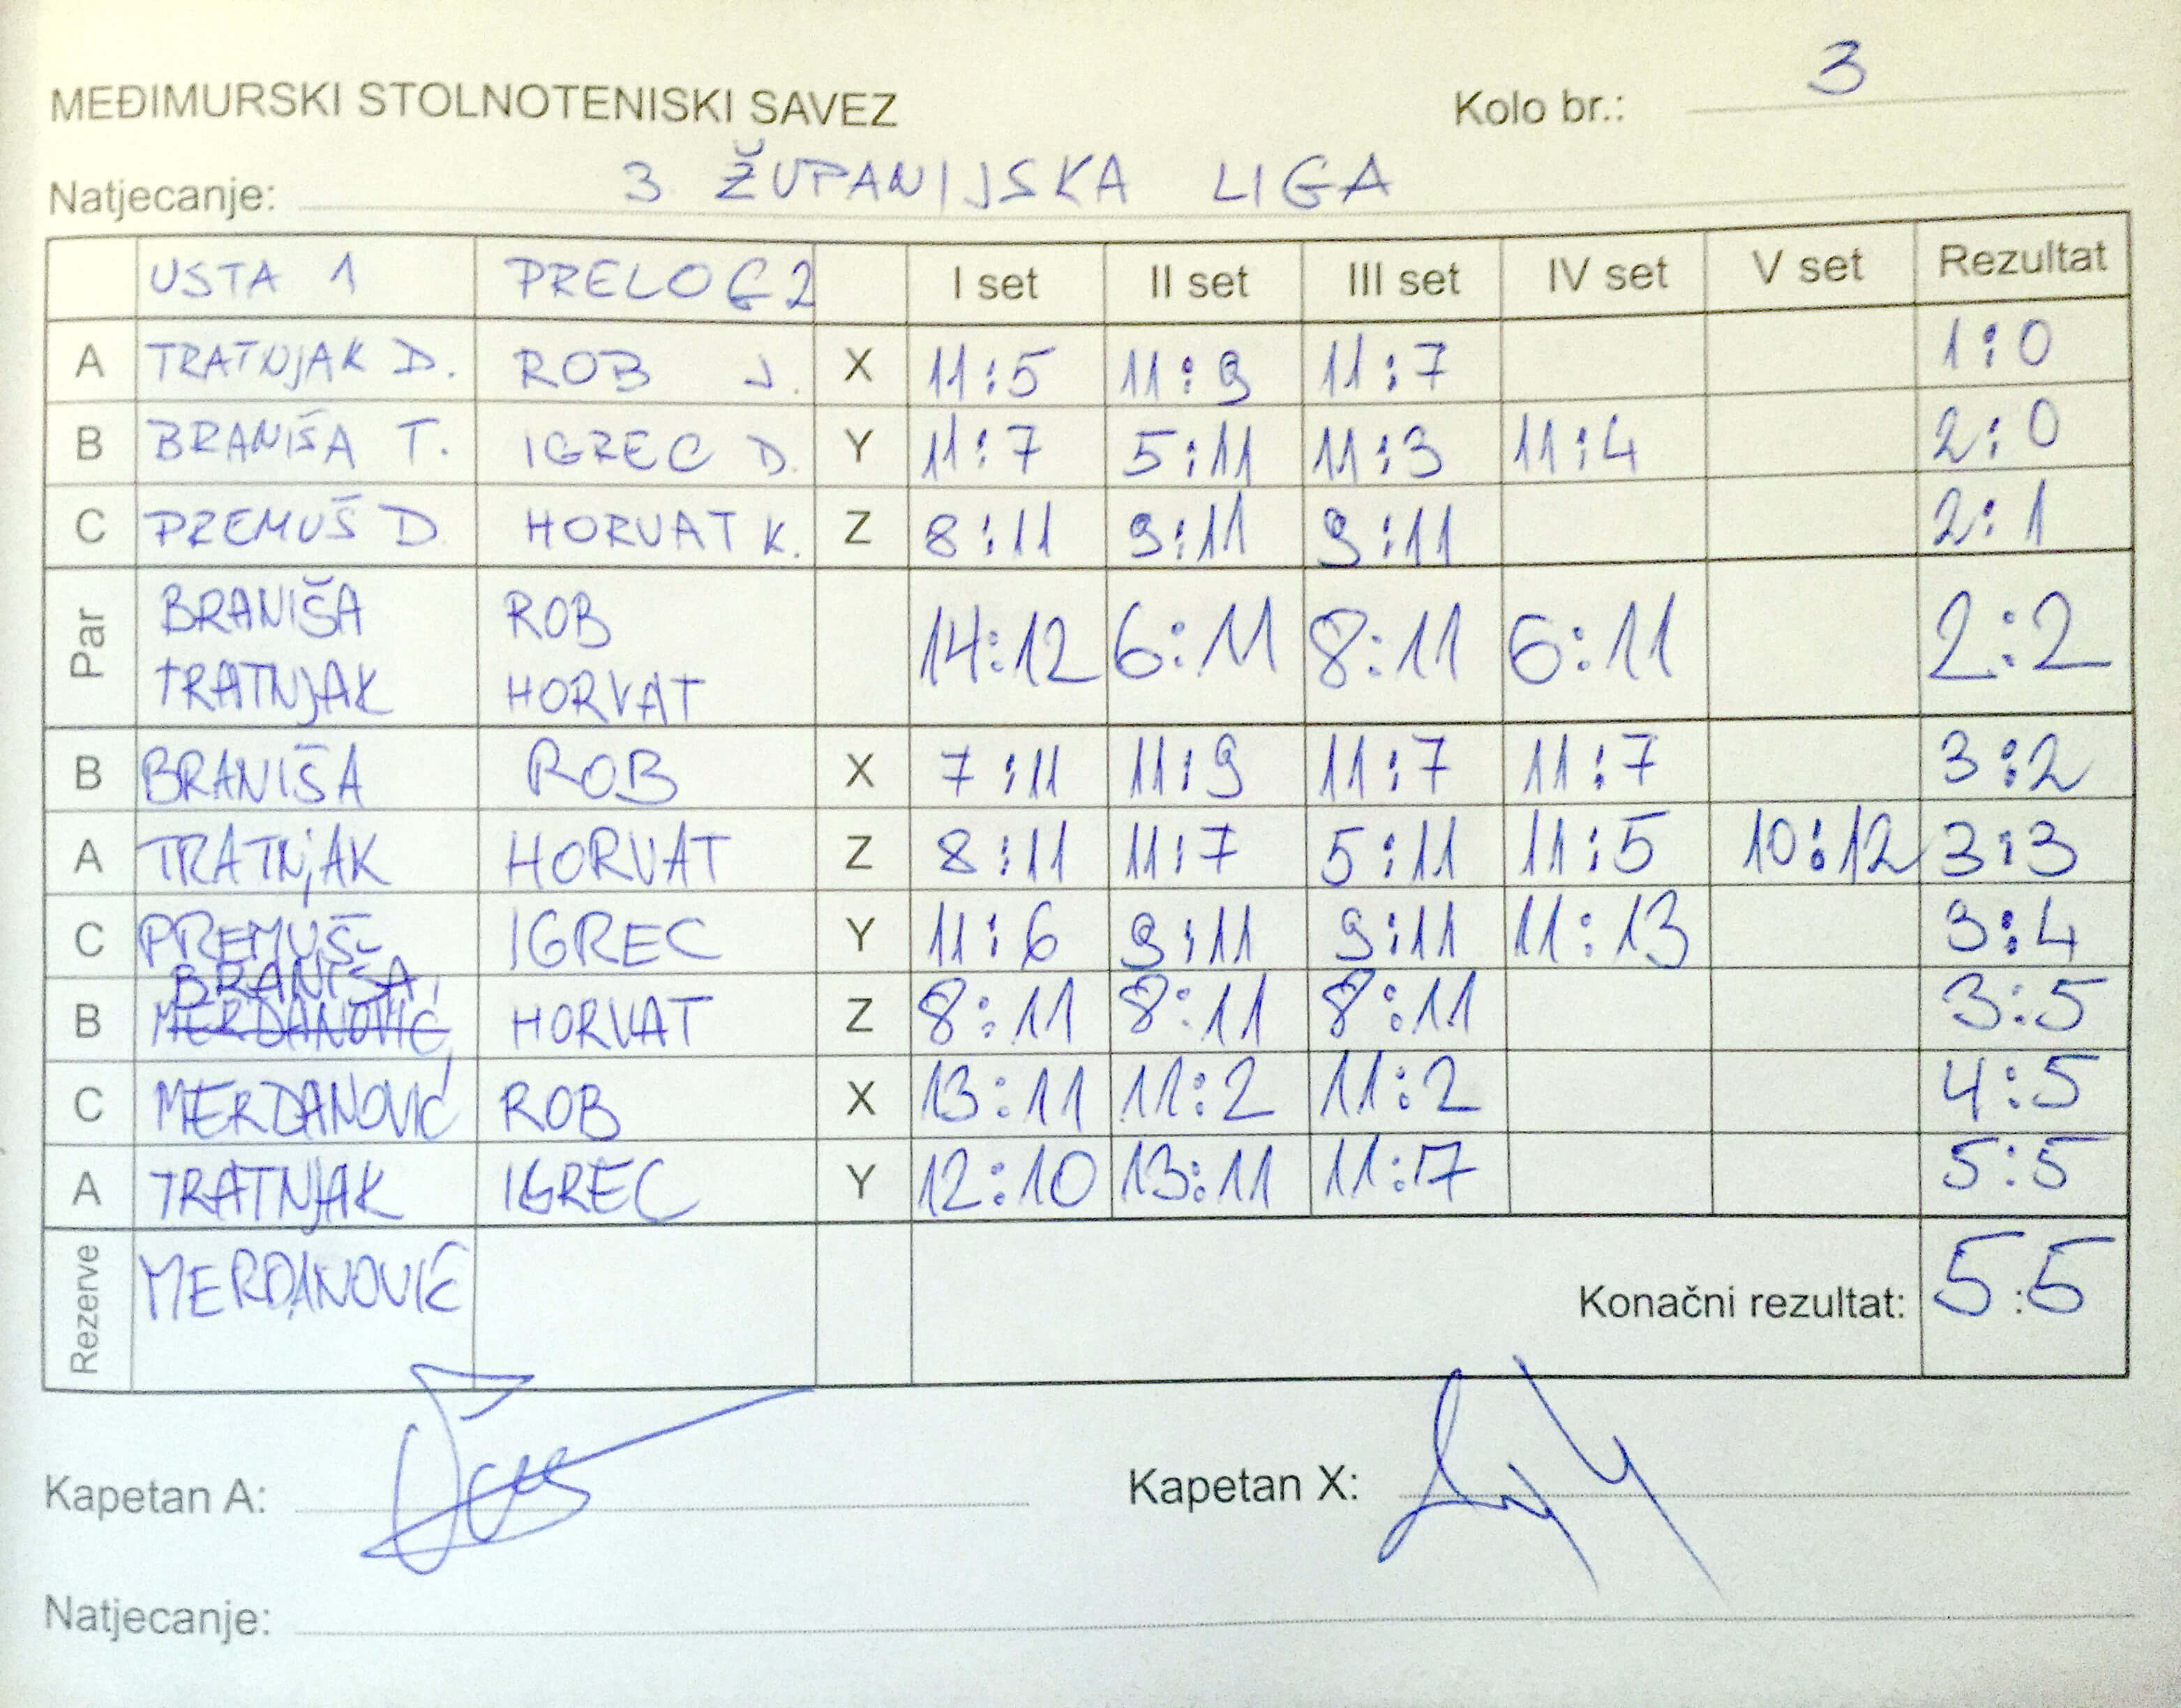 MEĐIMURSKI STOLNOTENISKI SAVEZ Kolo br.: 3
Natjecanje: 3 ŽUPANIJSKA LIGA
USTA 1 PRELOG 2 I set II set III set IV set V set Rezultat
A TRATNJAK D. ROB J. X 11:5 11:9 11:7 1:0
B BRANIŠA T. IGREC D. Y 11:7 5:11 11:3 11:4 2:0
C PREMUŠ D. HORVAT K. Z 8:11 9:11 9:11 2:1
Par BRANIŠA ROB 14:12 6:11 8:11 6:11 2:2
TRATNJAK HORVAT
B BRANIŠA ROB X 7:11 11:9 11:7 11:7 3:2
A TRATNJAK HORVAT Z 8:11 11:7 5:11 11:5 10:12 3:3
C PREMUŠ IGREC Y 11:6 9:11 9:11 11:13 3:4
BRANIŠA
B MERDANOVIĆ HORVAT Z 8:11 8:11 8:11 3:5
C MERDANOVIĆ ROB X 13:11 11:2 11:2 4:5
A TRATNJAK IGREC Y 12:10 13:11 11:7 5:5
Rezerve MERDANOVIĆ Konačni rezultat: 5:5
Kapetan A: Kapetan X:
Natjecanje: